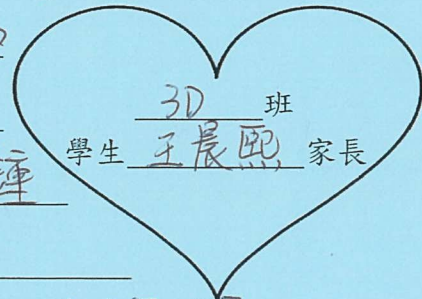 3D 班
學生 王晨熙 家長